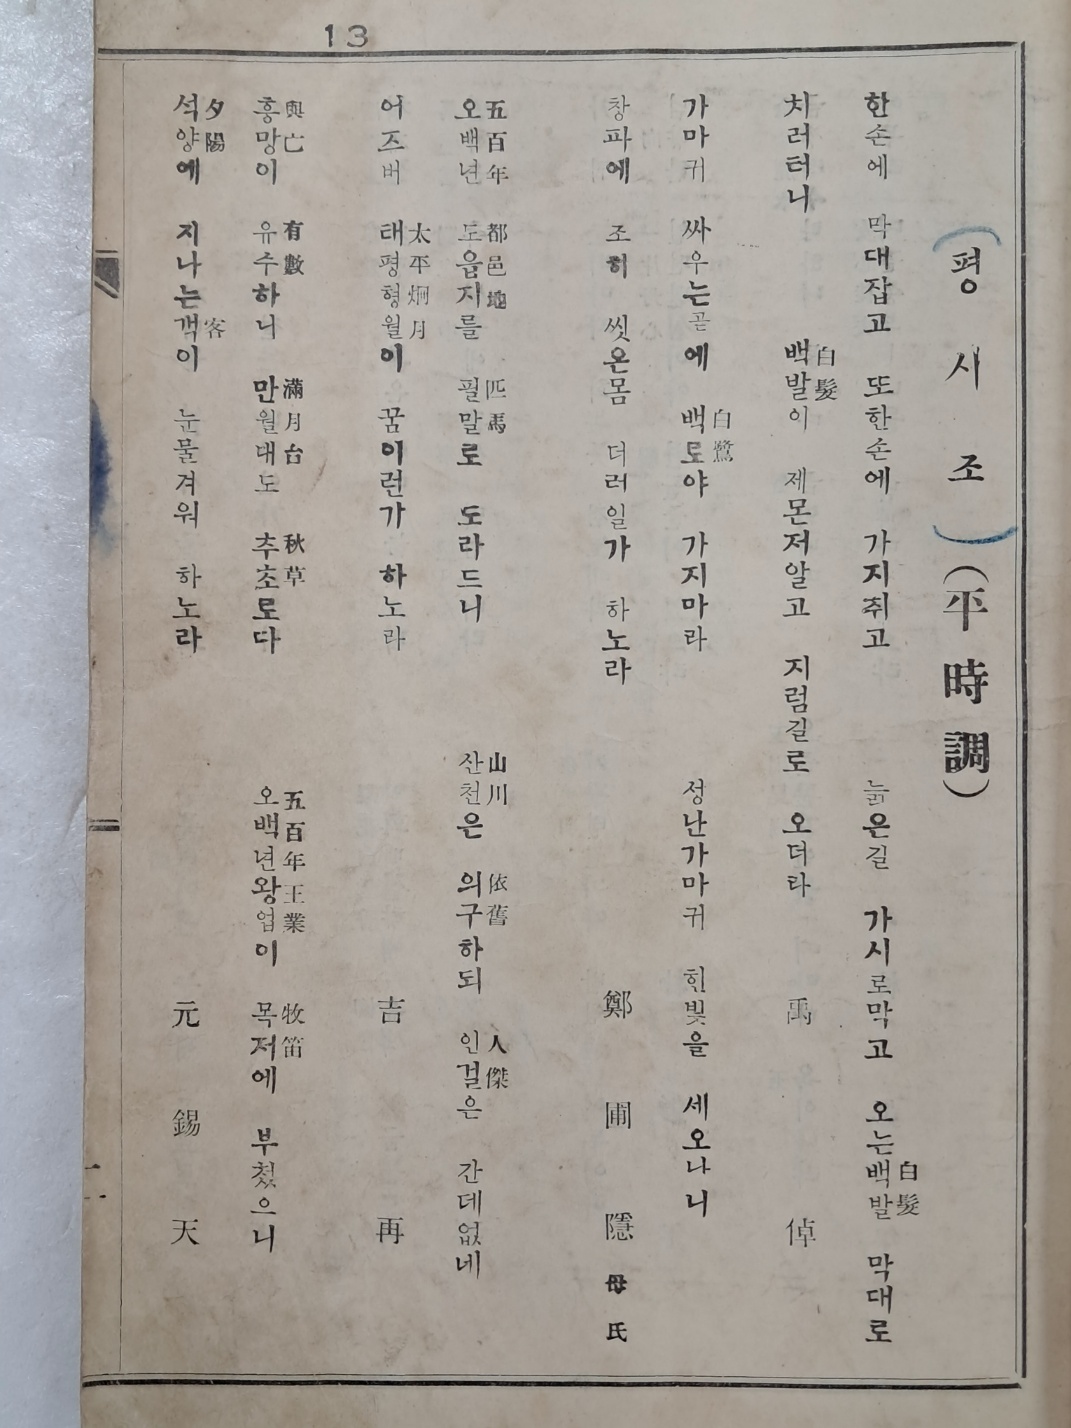 13
(평시조)(平時調)
한손에 막대잡고 또한손에 가지쥐고 늙은길 가시로막고 오는백발 막대로
白髮
치러터니 백발이 제몬저알고 지럼길로 오더라 禹倬
白髮
가마귀 싸우는곧에 백로야 가지마라 성난가마귀 힌빛을 세오나니
白鷺
창파에 조히 씻온몸 더러일가 하노라 鄭圃隱母氏
五百年 都邑地 匹馬 山川 依舊 人傑
오백년 도읍지를 필말로 도라드니 산천은 의구하되 인걸은 간데없네
太平烱月
어즈버 태평형월이 꿈이런가 하노라 吉再
興亡 有數 滿月台 秋草 五百年王業 牧笛
흥망이 유수하니 만월대도 추초로다 오백년왕업이 목저에 부첬으니
夕陽 客
석양에 지나는객이 눈물겨워 하노라 元錫天